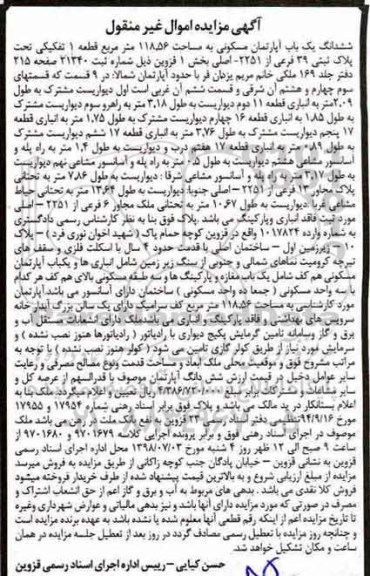 آگهی مزایده اموال غیر منقول
ششدانگ یک باب آپارتمان مسکونی به مساحت ۱۱۸،۵۶ متر مربع قطعه ۱ تفکیکی تحت
پلاک ثبتی ۳۹ فرعی از ۲۲۵۱- اصلی بخش ۱ قزوین ذیل شماره ثبت ۲۱۳۴۰ صفحه ۲۱۵
دفتر جلد ۱۶۹ ملکی خانم مریم یزدان فر با حدود آپارتمان شمالا: در ۹ قسمت که قسمتهای
سوم چهارم و هشتم آن شرقی و قسمت ششم آن غربی است اول دیواریست مشترک به طول
۲،۰۹متر به انباری قطعه ۱۱ دوم دیواریست به طول ۳،۱۸ متر به راهرو سوم دیواریست مشترک
به طول ۱،۸۵ به انباری قطعه ۱۶ چهارم دیواریست مشترک به طول ۱،۷۵ متر به انباری قطعه
۱۷ پنجم دیواریست مشترک به طول ۳،۷۶ متر به انباری قطعه ۱۷ ششم دیواریست مشترک
به طول ۰،۸۹ متر به انباری قطعه ۱۷ هفتم درب و دیواریست به طول ۱،۴ متر به راه پله و
آسانسور مشاعی هشتم دیواریست به طول ۰،۵ متر به راه پله و آسانسور مشاعی نهم دیواریست
به طول ۳،۰۷ متر به راه پله و آسانسور مشاعی شرقا : دیواریست به طول ۷،۸۶ متر به تحتانی
پلاک مجاور ۱۳ فرعی از ۲۲۵۱ – اصلی جنوبا: دیواریست به طول ۱۳،۶۴ متر به تحتانی حیاط
مشاعی غربا :دیواریست به طول ۱۰،۶۷ متر به تحتانی ملک مجاور ۶ فرعی از ۲۲۵۱ – اصلی
مورد ثبت فاقد انباری وپارکینگ می باشد .پلاک فوق بنا به نظر کارشناس رسمی دادگستری
به شماره وارده ۱۰۱۷۸۲۴ واقع در قزوین کوچه حمام پاک ( شهید اخوان نوری فرد ) – پلاک
۱۰ – زیرزمین اول – ساختمان اصلی با قدمت حدود ۴ سال با اسکلت فلزی و سقف های
تیرچه کرومیت نماهای شمالی و جنوبی از سنگ زیر زمین شامل انباری ها و یکباب آپارتمان
مسکونی هم کف شامل یک باب مغازه و پارکینگ ها و سه طبقه مسکونی بالای هم کف هر کدام
با سه واحد مسکونی ( جمعا ده واحد مسکونی ) ساختمان دارای آسانسور می باشد آپارتمان
مورد کارشناسی به مساحت ۱۱۸،۵۶ متر مربع کف سرامیک دارای یک سالن بزرگ آبدارخانه
سرویس های بهداشتی و فاقد پارکینگ و انباری می باشد ملک دارای انشعابات مستقل آب و
برق و گاز وسامانه تامین گرمایش پکیج دیواری با رادیاتور ( رادیاتورها هنوز نصب نشده ) و
سرمایش مورد نیاز از طریق کولر گازی تامین می شود ( کولر هنوز نصب نشده ) با توجه به
مراتب مشروح فوق و موقعیت محلی ملک ابعاد و مساحت قدمت ونوع مصالح مصرفی و رعایت
سایر عوامل دخیل در قیمت ارزش شش دانگ آپارتمان موصوف با قدرالسهم از عرصه کل و
سایر مشاعات و مشترکات برابر مبلغ ریال تعیین و اعلام میگردد. ملک بنا به
اعلام بستانکار در ید مالک می باشد . پلاک فوق برابر اسناد رهنی شماره ۱۷۹۵۴ و ۱۷۹۵۵
مورخ ۹۴/۹/۱۶ تنظیمی دفتر اسناد رسمی ۳۰ قزوین در رهن بانک ملت قزوین می باشد ملک
موصوف در اجرای اسناد رهنی فوق و برابر پرونده اجرایی کلاسه ۹۷۰۱۶۷۹ و ۹۷۰۱۶۸۰ از
ساعت ۹ صبح الی ۱۲ ظهر روز ۴ شنبه مورخ ۱۳۹۸/۰۷/۰۳ محل اداره اجرای اسناد رسمی
قزوین به نشانی قزوین – خیابان پادگان جنب کوچه زاکانی از طریق مزایده به فروش میرسد
مزایده از مبلغ ارزیابی شروع و به بالاترین قیمت پیشنهاد شده از طرف خریدار فروخته میشود
فروش کلا نقدی می باشد . بدهی های مربوط به آب و برق و گاز اعم از حق انشعاب اشتراک و
مصرف در صورتی که مورد مزایده دارای آنها باشد و نیز بدهی مالیاتی و عوارض شهرداری وغیره
تا تاریخ مزایده اعم از اینکه رقم قطعی آنها معلوم شده یا نشده باشد به عهده برنده مزایده است
و چنانچه روز مزایده با تعطیل رسمی مصادف گردد در روز بعد از تعطیل جلسه مزایده در همان
ساعت و مکان تشکیل خواهد شد.
حسن کیایی – رییس اداره اجرای اسناد رسمی قزوین